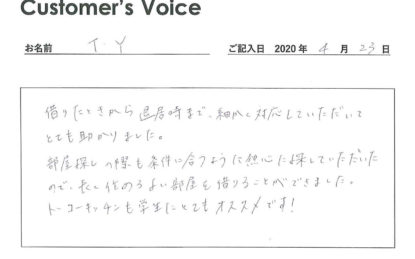 Customer's Voice
お名前 T.Y ご記入日 2020 年 4 月 23 日
借りたときから退居時まで、細かく対応していただいて
とても助かりました。
部屋探しの際も条件に合うように熱心に探していただいた
ので、長く住めるよい部屋を借りることができました。
トーコーキッチンも学生にとてもオススメです!